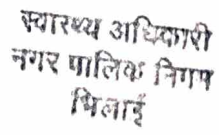 स्वास्थ्य अधिकारी
नगर पालिक निगम
भिलाई